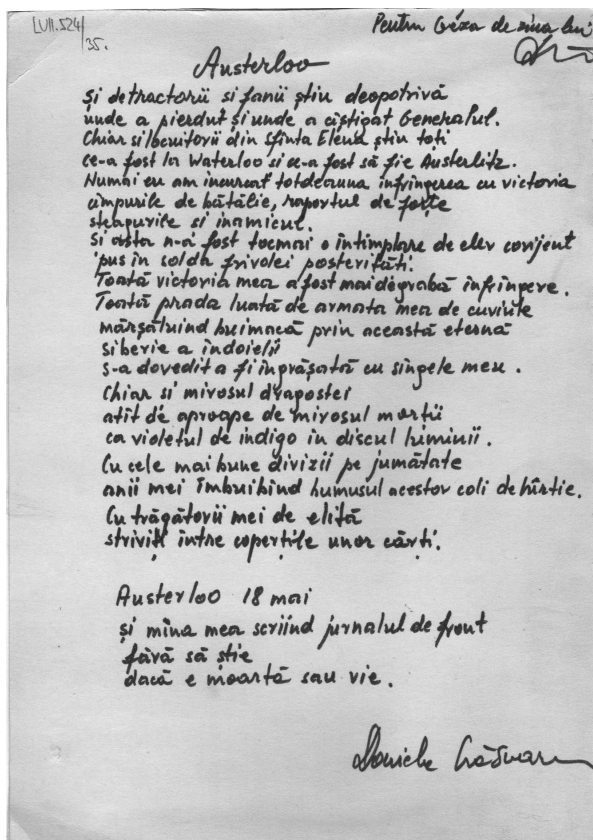 LVII.524/35.
Pentru Géza de ziua lui
Austerloo
Și detractorii si fanii știu deopotrivă
unde a pierdut și unde a cîștigat Generalul.
Chiar si locuitorii din Sfînta Elena știu toți
ce-a fost la Waterloo si ce-a fost să fie Austerlitz.
Numai eu am incurcat totdeauna infrîngerea cu victoria
cîmpurile de bătălie, raportul de forțe
steagurile si inamicul.
Si asta n-a fost tocmai o întîmplare de elev corijent
pus în solda frivolei posterități.
Toată victoria mea a fost mai degrabă infrîngere.
Toată prada luată de armata mea de cuvinte
mărșăluind buimacă prin această eternă
siberie a indoielii
s-a dovedit a fi îngrășată cu sîngele meu.
Chiar si mirosul dragostei
atît de aproape de mirosul morții
ca violetul de indigo în discul luminii.
Cu cele mai bune divizii pe jumătate
anii mei îmbuibînd humusul acestor coli de hîrtie.
Cu trăgătorii mei de elită
striviți între copertile unor cărti.
Austerloo 18 mai
și mîna mea scriind jurnalul de front
fără să știe
dacă e moartă sau vie.